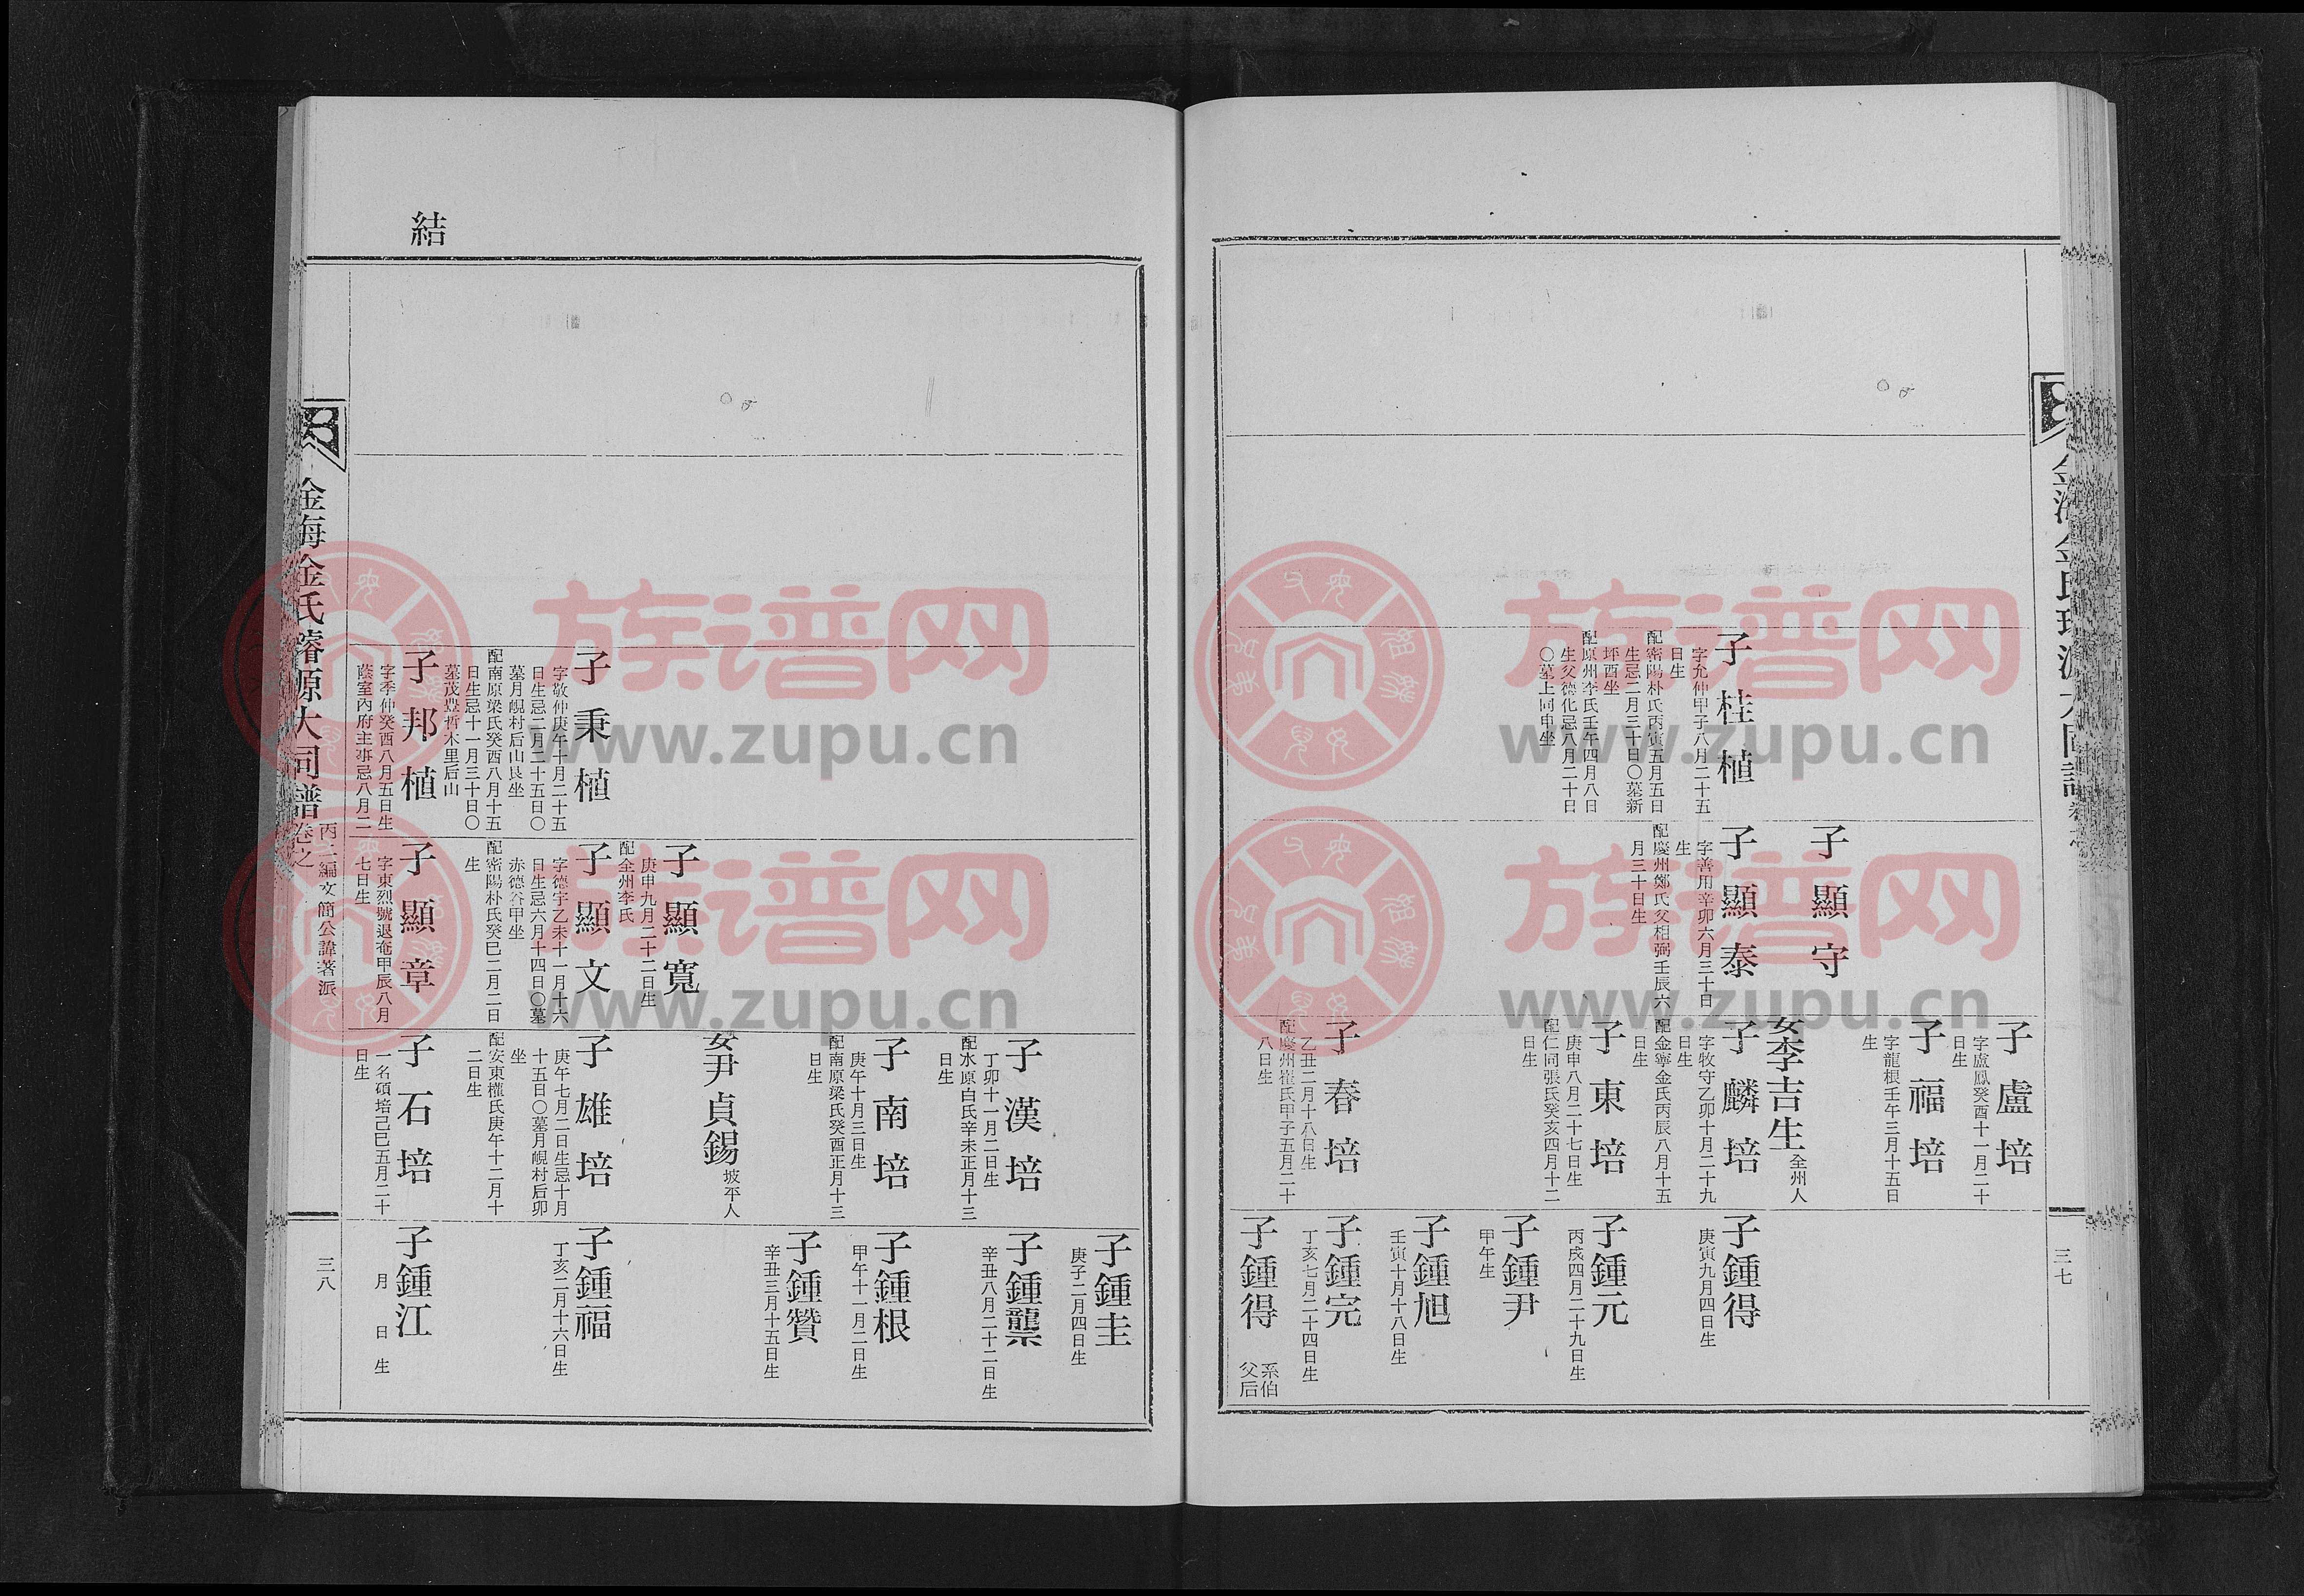 三七
子桂植
字允仲甲子八月二十五
日生
配密陽朴氏丙寅五月五日
生忌二月三十日〇墓新
坪酉坐
配原州李氏壬午四月八日
生父德化忌八月二十日
〇墓上同申坐
子顯守
子顯泰
字善用辛卯六月三十日
生
配慶州鄭氏父相弼壬辰六
月三十日生
子盧培
字盧鳳癸酉十一月二十
日生
子福培
字龍根壬午三月十五日
生
女李吉生
全州人
子麟培
字牧守乙卯十月二十九
日生
配金寧金氏丙辰八月十五
日生
子東培
庚申八月二十七日生
配仁同張氏癸亥四月十二
日生
子春培
乙丑二月十八日生
配慶州崔氏甲子五月二十
八日生
子鍾得
庚寅九月四日生
子鍾元
丙戌四月二十九日生
子鍾尹
甲午生
子鍾旭
壬寅十月十八日生
子鍾完
丁亥七月二十四日生
子鍾得
系伯
父后
結
子秉植
字敬仲庚午十月二十五
日生忌二月二十五日〇
墓月峴村后山艮坐
配南原梁氏癸酉八月十五
日生忌十一月三十日〇
墓茂豊哲木里后山
子邦植
字季仲癸酉八月五日生
蔭室內府主事忌八月二
子顯寬
庚申九月二十二日生
配全州李氏
子顯文
字德宇乙未十一月十六
日生忌六月十四日〇墓
赤德谷甲坐
配密陽朴氏癸巳二月二日
生
子顯章
字東烈號退奄甲辰八月
七日生
子漢培
丁卯十一月二日生
配水原白氏辛未正月十三
日生
子南培
庚午十月三日生
配南原梁氏癸酉正月十三
日生
女尹貞錫
坡平人
子雄培
庚午七月二日生忌十月
十五日〇墓月峴村后卯
坐
配安東權氏庚午十二月十
二日生
子石培
一名碩培己巳五月二十
日生
子鍾圭
庚子二月四日生
子鍾龒
辛丑八月二十二日生
子鍾根
甲午十一月二日生
子鍾贊
辛丑三月十五日生
子鍾福
丁亥二月十六日生
子鍾江
月 日生
金海金氏璿源大同譜
卷之
丙二編文簡公諱著派
三八
族谱网
www.zupu.cn
族谱网
www.zupu.cn
族谱网
www.zupu.cn
族谱网
www.zupu.cn